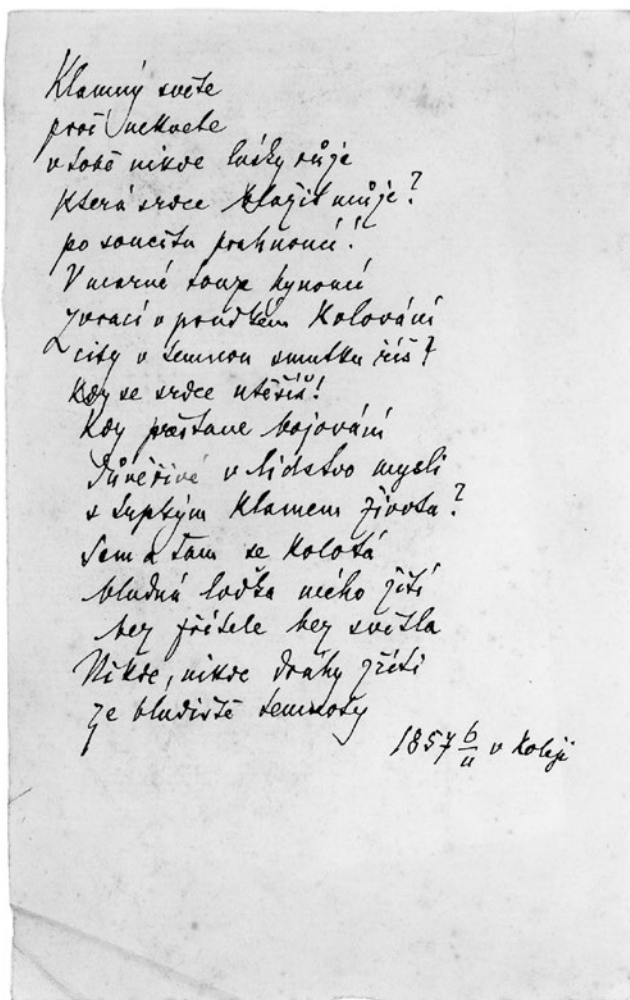 Klamný světe
proč nekvete
v tobě nikde lásky růje
která srdce blažit můje?
po soucitu prahnoucí!
V marné touze kynoucí
zvrací v prudkém kolování
city v temnou smutku říš?
Kdy se srdce utěšíš!
Kdy přestane bojování
důvěřivé v lidstvo mysli
s trpkým klamem života?
Sem a tam se kolotá
bludná loďka mého žití
bez přítele bez světla
Nikde, nikde dráhy zříti
ze bludiště temnoty
1857 6/11 v koleji